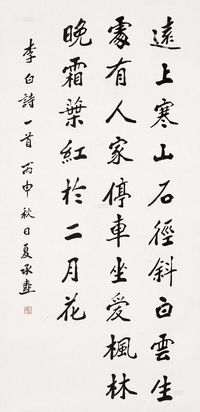 遠上寒山石徑斜白雲生
處有人家停車坐愛楓林
晚霜葉紅於二月花
李白詩一首 丙申秋日夏承燾